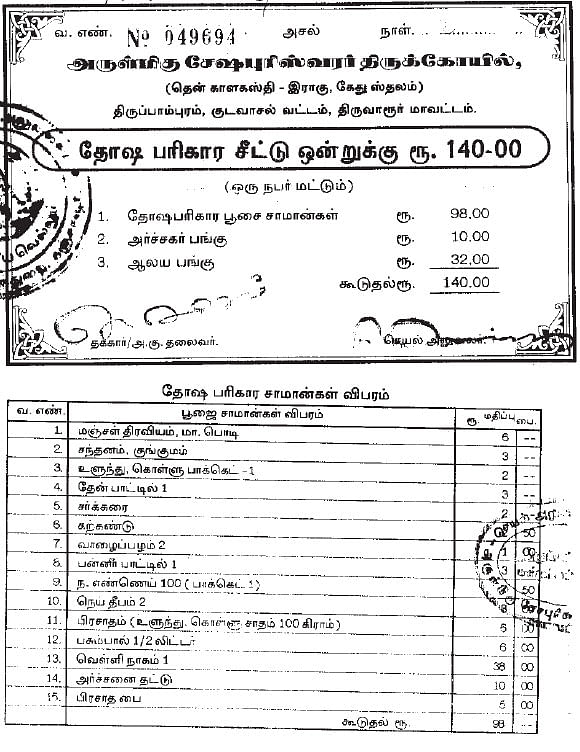 வ. எண். Nº 049694 அசல் நாள்.
அருள்மிகு சேஷபுரிஸ்வரர் திருக்கோயில்,
(தென் காளகஸ்தி - இராகு, கேது ஸ்தலம்)
திருப்பாம்புரம், குடவாசல் வட்டம், திருவாரூர் மாவட்டம்.
தோஷ பரிகார சீட்டு ஒன்றுக்கு ரூ. 140-00
(ஒரு நபர் மட்டும்)
1. தோஷபரிகார பூசை சாமான்கள் ரூ. 98.00
2. அர்ச்சகர் பங்கு ரூ. 10.00
3. ஆலய பங்கு ரூ. 32.00
கூடுதல்ரூ. 140.00
தக்கார்/அ.கு.தலைவர். செயல்
தோஷ பரிகார சாமான்கள் விபரம்
வ. எண். பூஜை சாமான்கள் விபரம் ரூ. மதிப்பு பை.
1. மஞ்சள் திரவியம், மா. பொடி 6 --
2. சந்தனம், குங்குமம் 3 --
3. உளுந்து, கொள்ளு பாக்கெட் -1 2 --
4. தேன் பாட்டில் 1 3 --
5. சர்க்கரை 2
6. கற்கண்டு 50
7. வாழைப்பழம் 2 1 00
8. பன்னீர் பாட்டில் 1 3
9. ந. எண்ணெய் 100 ( பாக்கெட் 1) 50
10. நெய் தீபம் 2 00
11. பிரசாதம் ( உளுந்து, கொள்ளு சாதம் 100 கிராம்) 6 00
12. பசும்பால் 1/2 லிட்டர் 6 00
13. வெள்ளி நாகம் 1 38 00
14. அர்ச்சனை தட்டு 10 00
15. பிரசாத பை 5 00
கூடுதல் ரூ. 98 --